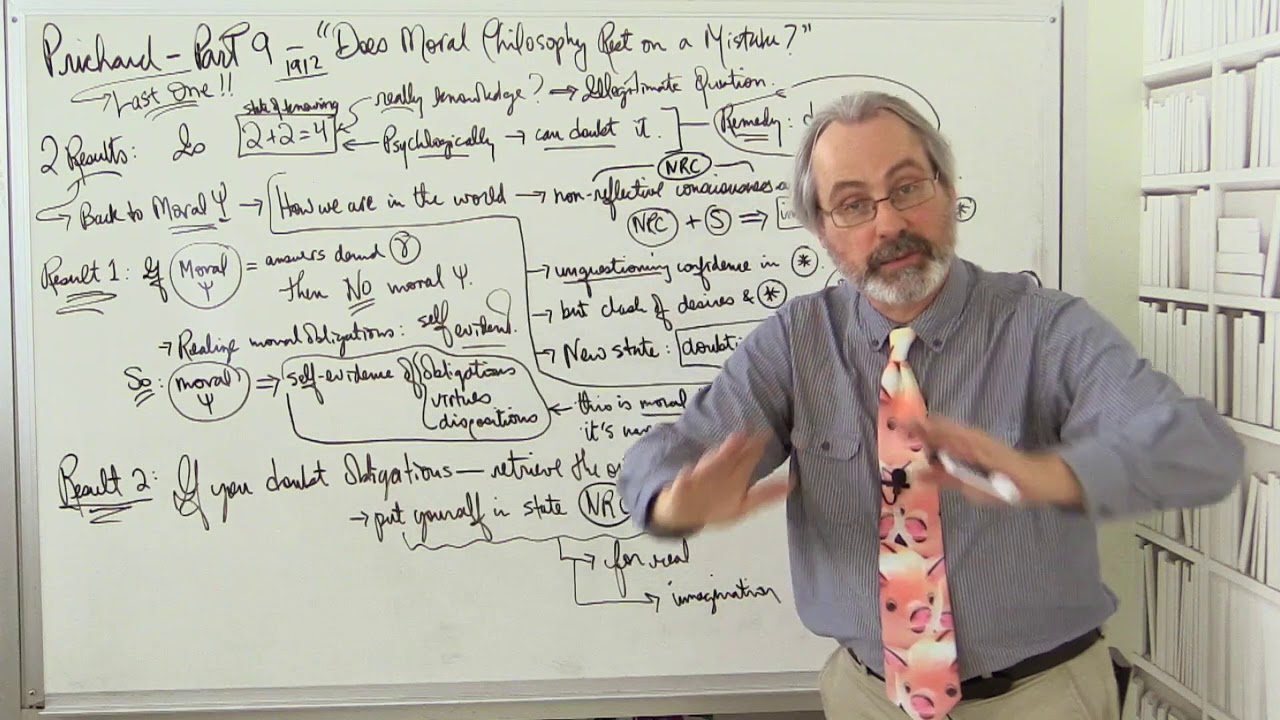 Prichard - Part 9 - 1912 "Does Moral Philosophy Rest on a Mistake?"
Last One!!
state of knowing
really knowledge? → Illegitimate Question.
2 Results: So 2+2=4 ← Psychlogically → can doubt it. Remedy: d
NRC
→ Back to Moral Ψ → How we are in the world → non-reflective conciousness a
NRC + S ⇒
Result 1: If Moral Ψ = answers demand
then NO moral Ψ.
→ unquestioning confidence in *.
→ but clash of desires & *
→ Realize moral obligations: self evident.
→ New state: doubt
So: moral Ψ ⇒ self-evidence of obligations
virtues
dispositions
← this is moral
it's
Result 2: If you doubt obligations — retrieve the
→ put yourself in state NRC
→ for real
→ imagination